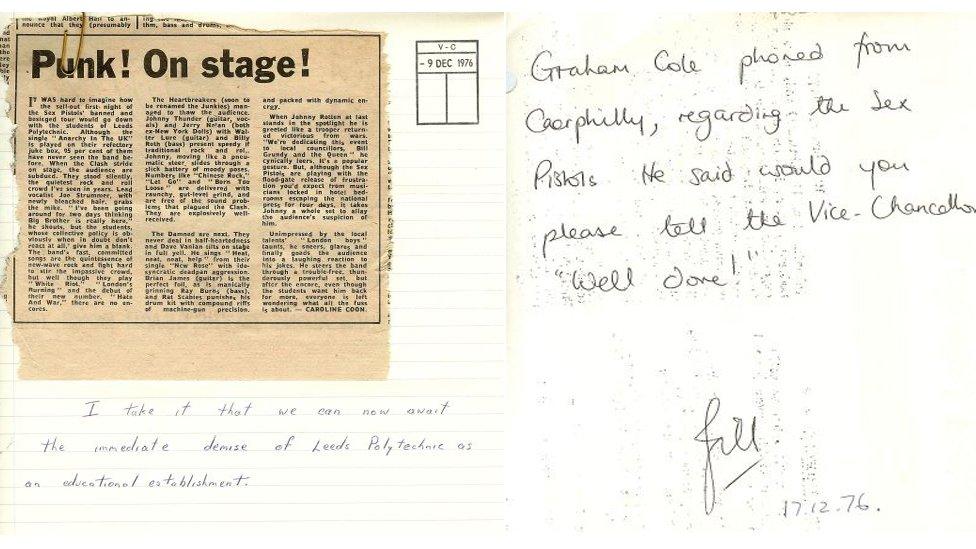 Royal Albert Hall to an-
nounce that they (presumably
ing two
thm, bass and drums,
Punk! On stage!
IT WAS hard to imagine how
the sell-out first night of
the Sex Pistols' banned and
besieged tour would go down
with the students of Leeds
Polytechnic. Although the
single "Anarchy In The UK"
is played on their refectory
juke box, 95 per cent of them
have never seen the band be-
fore. When the Clash stride
on stage, the audience are
subdued. They stood silently,
the quietest rock and roll
crowd I've seen in years. Lead
vocalist Joe Strummer, with
newly bleached hair, grabs
the mike. "I've been going
around for two days thinking
Big Brother is really here,"
he shouts, but the students,
whose collective policy is ob-
viously when in doubt don't
react at all, give him a blank.
The band's fast, committed
songs are the quintessence of
new-wave rock and fight hard
to stir the impassive crowd,
but well though they play
"White Riot," "London's
Burning" and the debut of
their new number, "Hate
And War," there are no en-
cores.
The Heartbreakers (soon to
be renamed the Junkies) man-
aged to thaw the audience.
Johnny Thunder (guitar, voc-
als) and Jerry Nolan (both
ex-New York Dolls) with Wal-
ter Lure (guitar) and Billy
Roth (bass) present speedy if
traditional rock and rol..
Johnny, moving like a pneu-
matic steer, slides through a
slick battery of moody poses.
Numbers like "Chinese Rock,"
"Let Go" and "Born Too
Loose" are delivered with
raunchy, gut-level grind, and
are free of the sound prob-
lems that plagued the Clash.
They are explosively well-
received.
The Damned are next. They
never deal in half-heartedness
and Dave Vanian tilts on stage
in full yell. He sings "Neat,
neat, neat, help" from their
single "New Rose" with idio-
syncratic deadpan aggression.
Brian James (guitar) is the
perfect foil, as is manically
grinning Ray Burns (bass),
and Rat Scabies punishes his
drum kit with compound riffs
of machine-gun precision.
and packed with dynamic en-
ergy.
When Johnny Rotten at last
stands in the spotlight he is
greeted like a trooper return-
ed victorious from wars.
"We're dedicating this event
to local councillors, Bill
Grundy and the Queen" he
cynically leers. It's a popular
gesture. But, although the Sex
Pistols are playing with the
flood-gate release of frustra-
tion you'd expect from musi-
cians locked in hotel bed-
rooms escaping the national
press for four days, it takes
Johnny a whole set to allay
the audience's suspicion of
him.
Unimpressed by the local
talents' "London boys"
taunts, he sneers, glares and
finally goads the audience
into a laughing reaction to
his jokes. He steers the band
through a trouble-free, thun-
derously powerful set, but
after the encore, even though
the students want him back
for more, everyone is left
wondering what all the fuss
is about. — CAROLINE COON.
V-C
- 9 DEC 1976
I take it that we can now await
the immediate demise of Leeds Polytechnic as
an educational establishment.
Graham Cole phoned from
Caerphilly, regarding the Sex
Pistols. He said would you
please tell the Vice-Chancellor
"Well done!"
Jill
17.12.76.